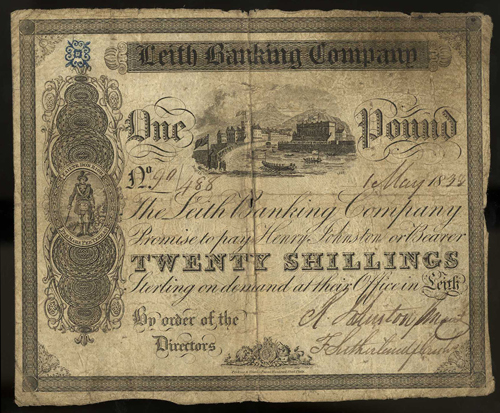 Leith Banking Company
One Pound
No 90/488 1 May 1838
The Leith Banking Company
Promise to pay Henry Johnston or Bearer
TWENTY SHILLINGS
Sterling on demand at their Office in Leith
By order of the
Directors